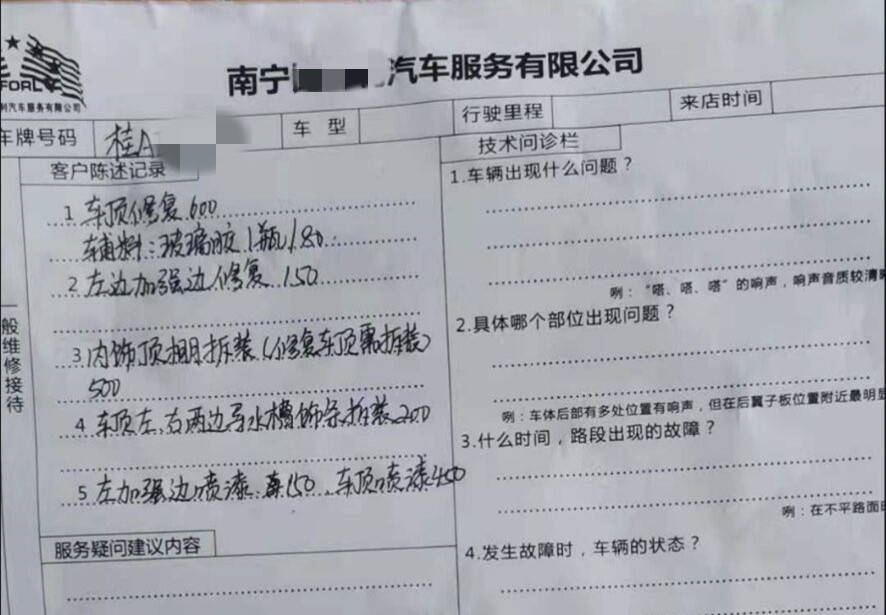 FORL
利汽车服务有限公司
南宁
汽车服务有限公司
车牌号码
桂A
车 型
行驶里程
来店时间
客户陈述记录
技术问诊栏
1 车顶修复600
辅料:玻璃胶1瓶180
2 左边加强边修复 150
3 内饰顶棚拆装(修复车顶需拆装)
500
4 车顶左、右两边导水槽饰条拆装200
5 左加强边喷漆 150 车顶喷漆450
服务疑问建议内容
般维修接待
1.车辆出现什么问题?
例:“嗒、嗒、嗒”的响声,响声音质较清
2.具体哪个部位出现问题?
例:车体后部有多处位置有响声,但在后翼子板位置附近最明显
3.什么时间,路段出现的故障?
例:在不平路面
4.发生故障时,车辆的状态?